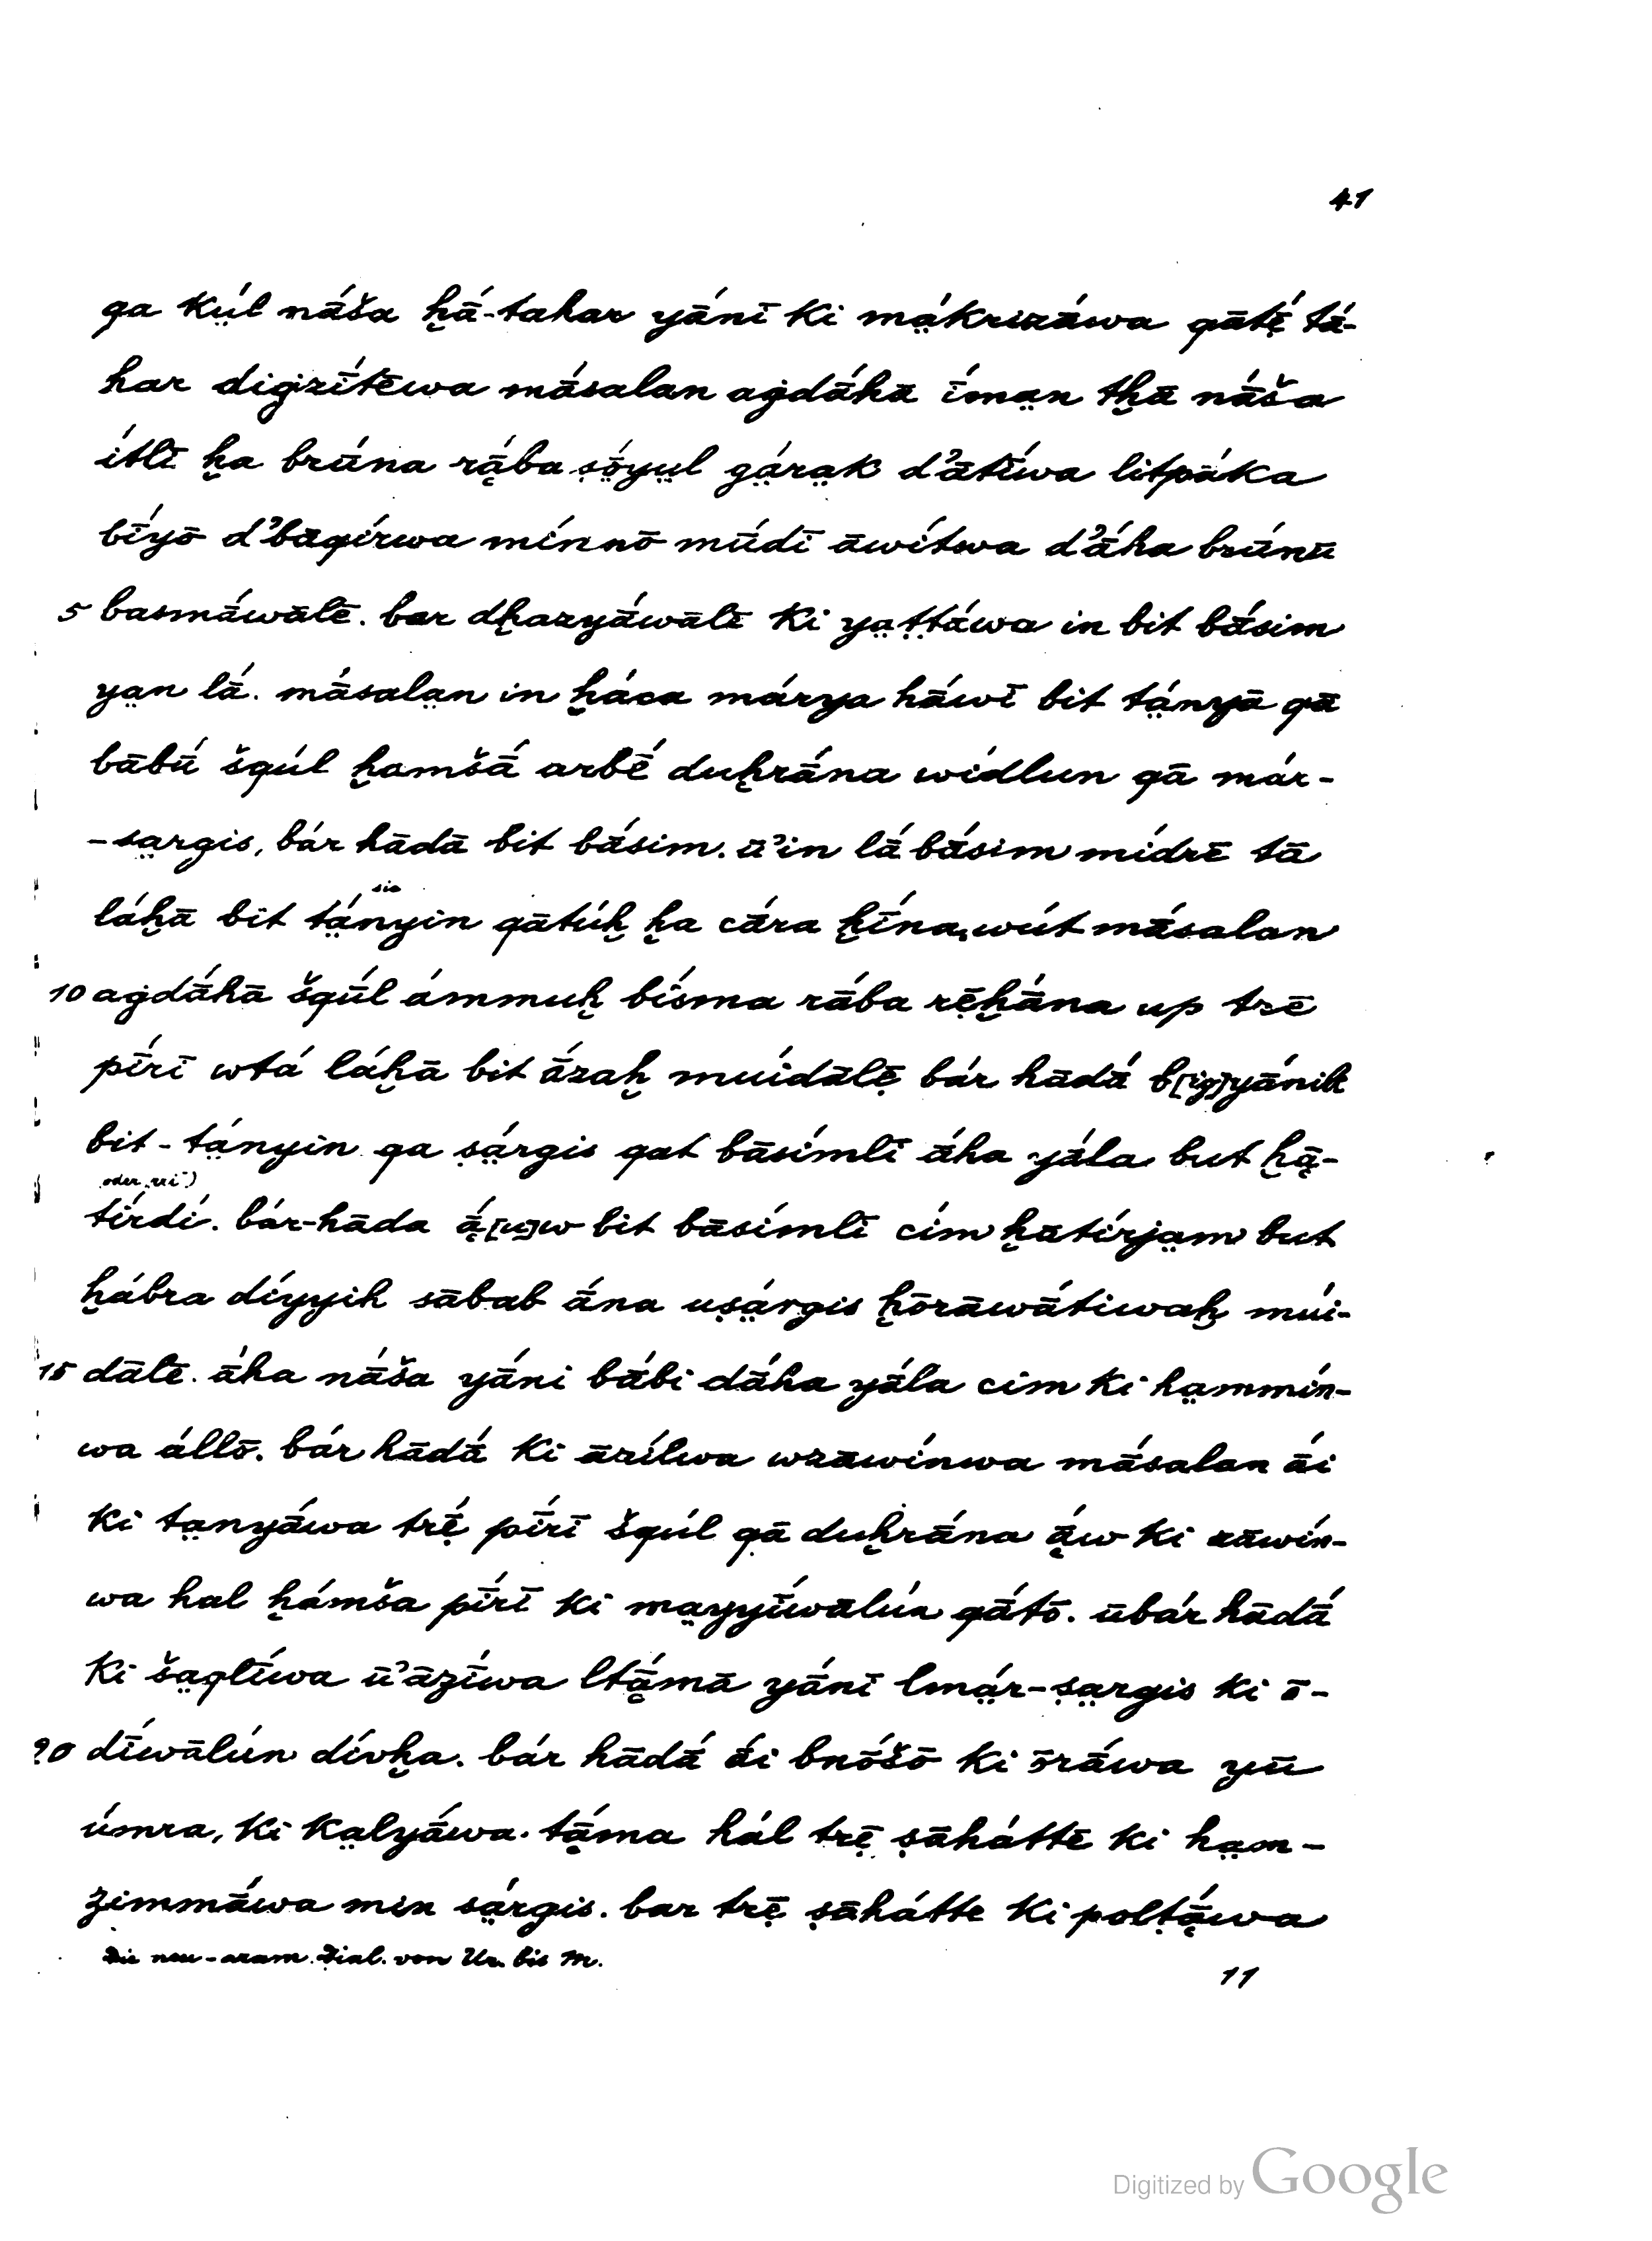 41
qa kṳ́l nā́ša ḫā́-tahar yā́nī ki ma̤krizā́wa qātẹ̄́ tā́-
har digzī́tēwa mā́salan aġdā́hā ī́ma̤n tḫā nā́ša
ítlī ḫa brū́na rā̤́ba ṣō̤yṳl gā̤́ra̤k d'ātī́wa litpā́ka
bīyō d'bāqírwa mínnō mū́dī āwítwa d'ā́ha brū́nū
5 basmā́wālē. bar dḫazyā́wālē ki ya̤ṭṭā́wa in bit bā́sim
ya̤n lā́. mā́sala̤n in ḫáca márya hā́wī bit tá̤nyā qā
bābū́ šqúl ḫamšā́ arbḗ duḫrā́na wídlun qā már-
-sa̤rgis, bár hādā bit bā́sim. ū'in lā́ bā́sim mídrē tā
sic
láḫā bit tá̤nyin qātúḫ ḫa cā́ra ḫī́na, wút mā́salan
10 aġdā́hā šqū́l ámmuḫ bísma rā́ba rẹ̄ḫā́na up trē
pī́rī wtá láḫā bit ā́zaḫ muidālẹ̄ bár hādā́ b[ig]yā́nih
bit-tá̤nyin qa ṣá̤rgis qat bāsímlī ā́ha yā́la but ḫā̤-
oder „rri")
tírdí. bár-hāda ā̤́[u]w bit bāsímlī cím ḫātírja̤m but
ḫábra díyyih sābab ā́na uṣá̤rgis ḫōrāwā́tiwaḫ múi-
15 dālē. ā́ha nā́ša yā́ni bā́bi dā́ha yā́la cim ki ha̤mmín-
wa állō. bár hādā́ ki āzílwa wzāwínwa mā́salan ā́i
ki ta̤nyā́wa trẹ̄́ pī́rī šqúl qā duḫrā́na ā̤́w ki zāwín-
wa hal ḫámša pī́rī ki ma̤yyī́wālún qā́tō. ūbár hādā́
ki ša̤qlī́wa ū'āzī́wa ltā̤́mā yā́nī lmā̤́r-ṣa̤rgis ki ō-
20 dī́wālún dívḫa. bár hādā́ ā́i bnō̄́šō ki ōrā́wa yū
úmra, ki ka̤lyā́wa. tā̤́ma hál trẹ̄ ṣāháttē ki ha̤m-
zimmā́wa min sá̤rgis. bar trẹ̄ ṣāhátte ki polṭā̤́wa
Die neu-aram. Dial. von Ur. bis M.
11
Digitized by Google